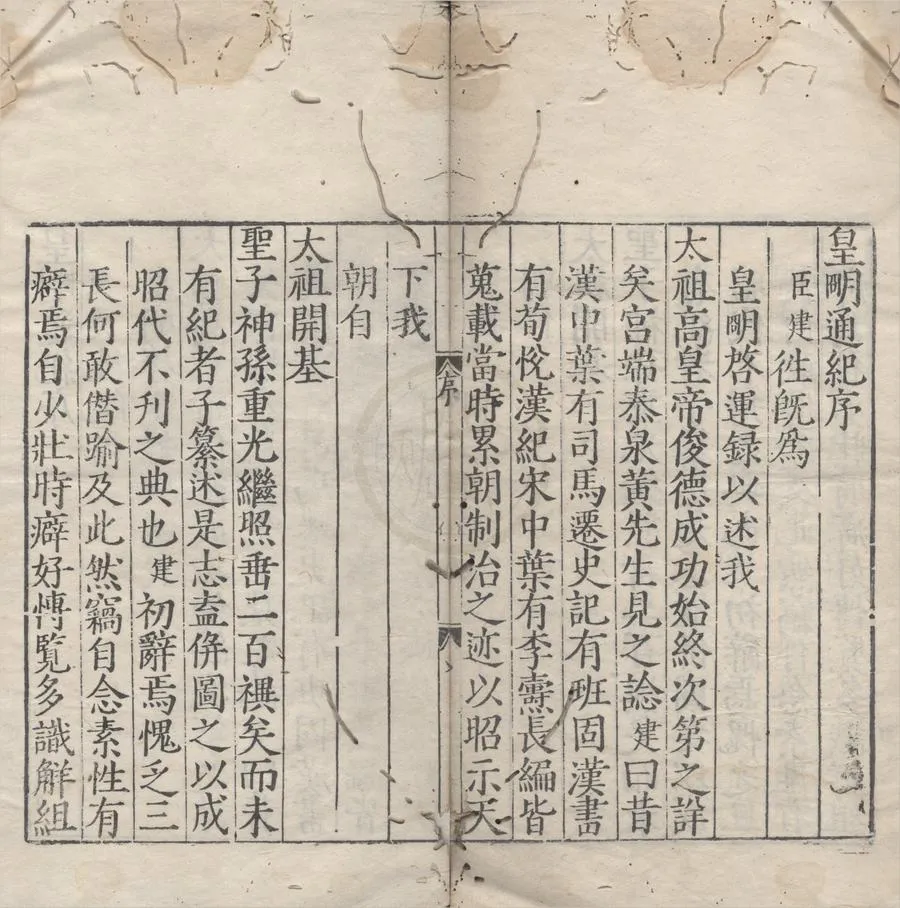 皇明通紀序
臣建徃旣爲
皇明啓運録以述我
太祖高皇帝俊德成功始終次第之詳
矣宫端泰泉黄先生見之諗建曰昔
漢中葉有司馬遷史記有班固漢書
有荀恱漢紀宋中葉有李燾長編皆
蒐載當時累朝制治之迹以昭示天
序
下我
朝自
太祖開基
聖子神孫重光繼照垂二百禩矣而未
有紀者子纂述是志盍倂圖之以成
昭代不刋之典也建初辭焉愧乏三
長何敢僣踰及此然竊自念素性有
癖焉自少壯時癖好愽覧多識觧組